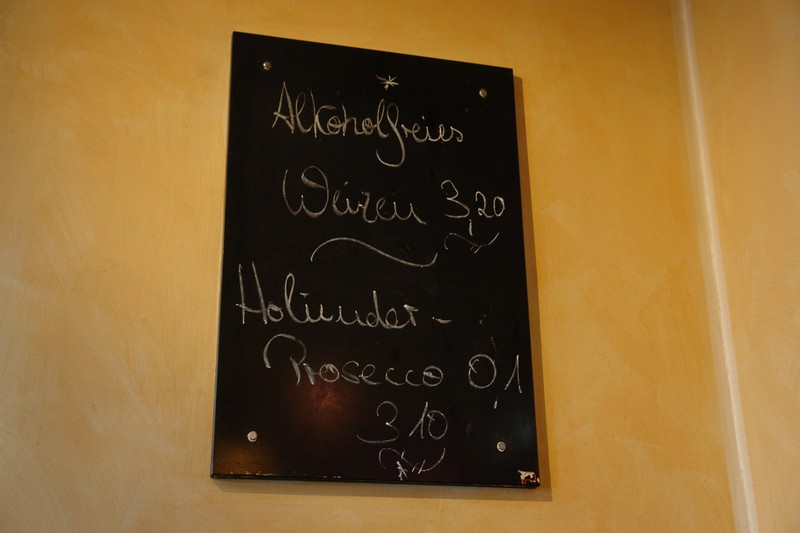 Alkoholfreies
Weizen 3,20
Holunder-
Prosecco 0,1
3 10